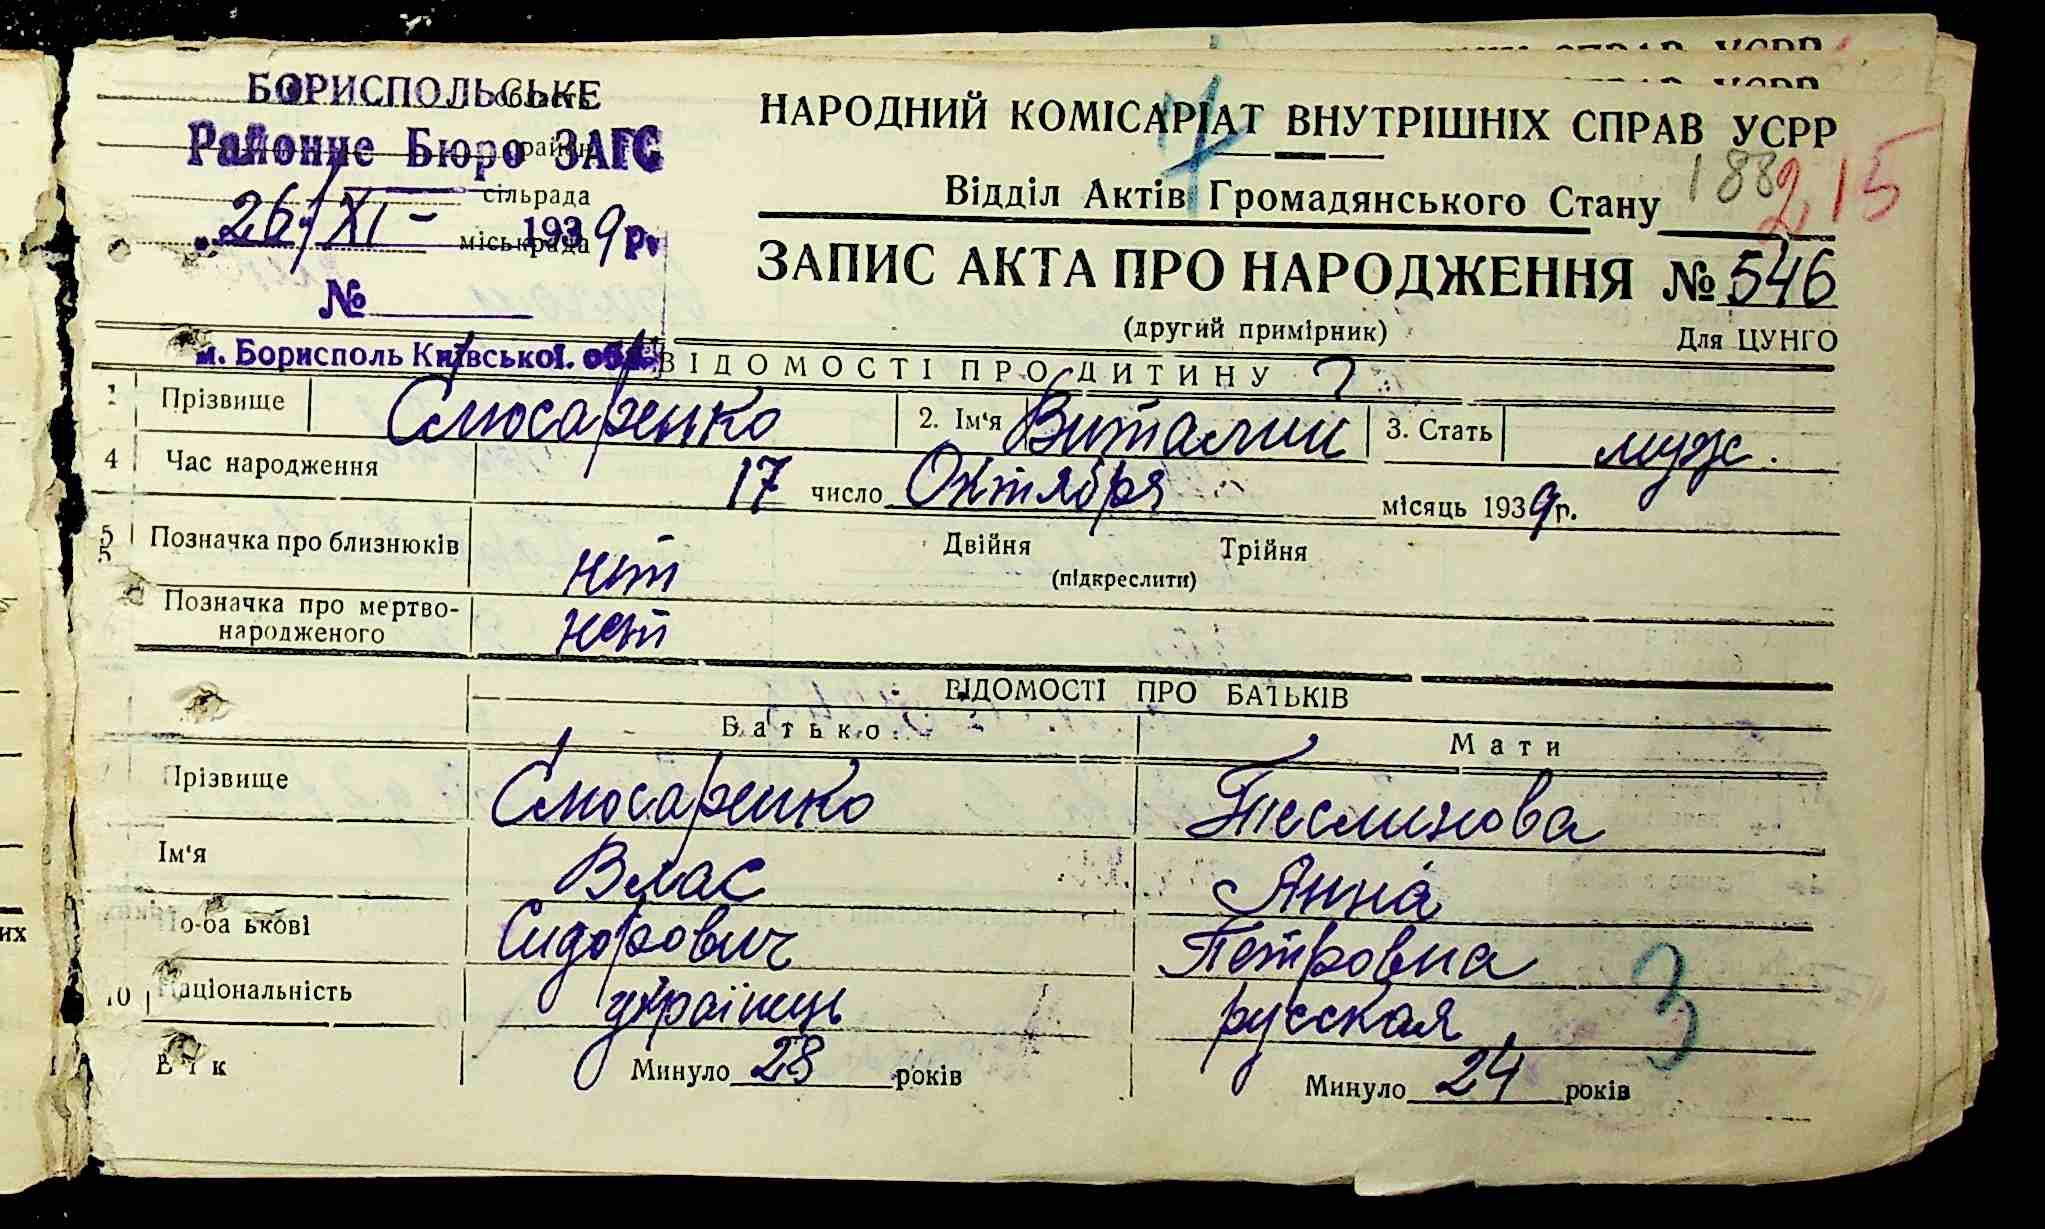 СПРАВ УСРР
СПРАВ УСРР
БОРИСПОЛЬСЬКЕ
область
Районне Бюро ЗАГС
район
сільрада
„26/XI- 1939 р.
міськрада
№
м. Борисполь Київської. обл.
НАРОДНИЙ КОМІСАРІАТ ВНУТРІШНІХ СПРАВ УСРР
188 215
Відділ Актів Громадянського Стану
ЗАПИС АКТА ПРО НАРОДЖЕННЯ № 546
(другий примірник) Для ЦУНГО
ВІДОМОСТІ ПРО ДИТИНУ
1 Прізвище Слюсаренко 2. Ім'я Виталий 3. Стать муж.
4 Час народження 17 число Октября місяць 1939 г.
5 Позначка про близнюків нет Двійня Трійня
5 (підкреслити)
Позначка про мертво-
народженого нет
ВІДОМОСТІ ПРО БАТЬКІВ
Батько Мати
Прізвище Слюсаренко Теслинова
Ім'я Влас Анна
По-ба ькові Сидорович Петровна
10 Національність українець русская 3
Вік Минуло 28 років Минуло 24 років
их